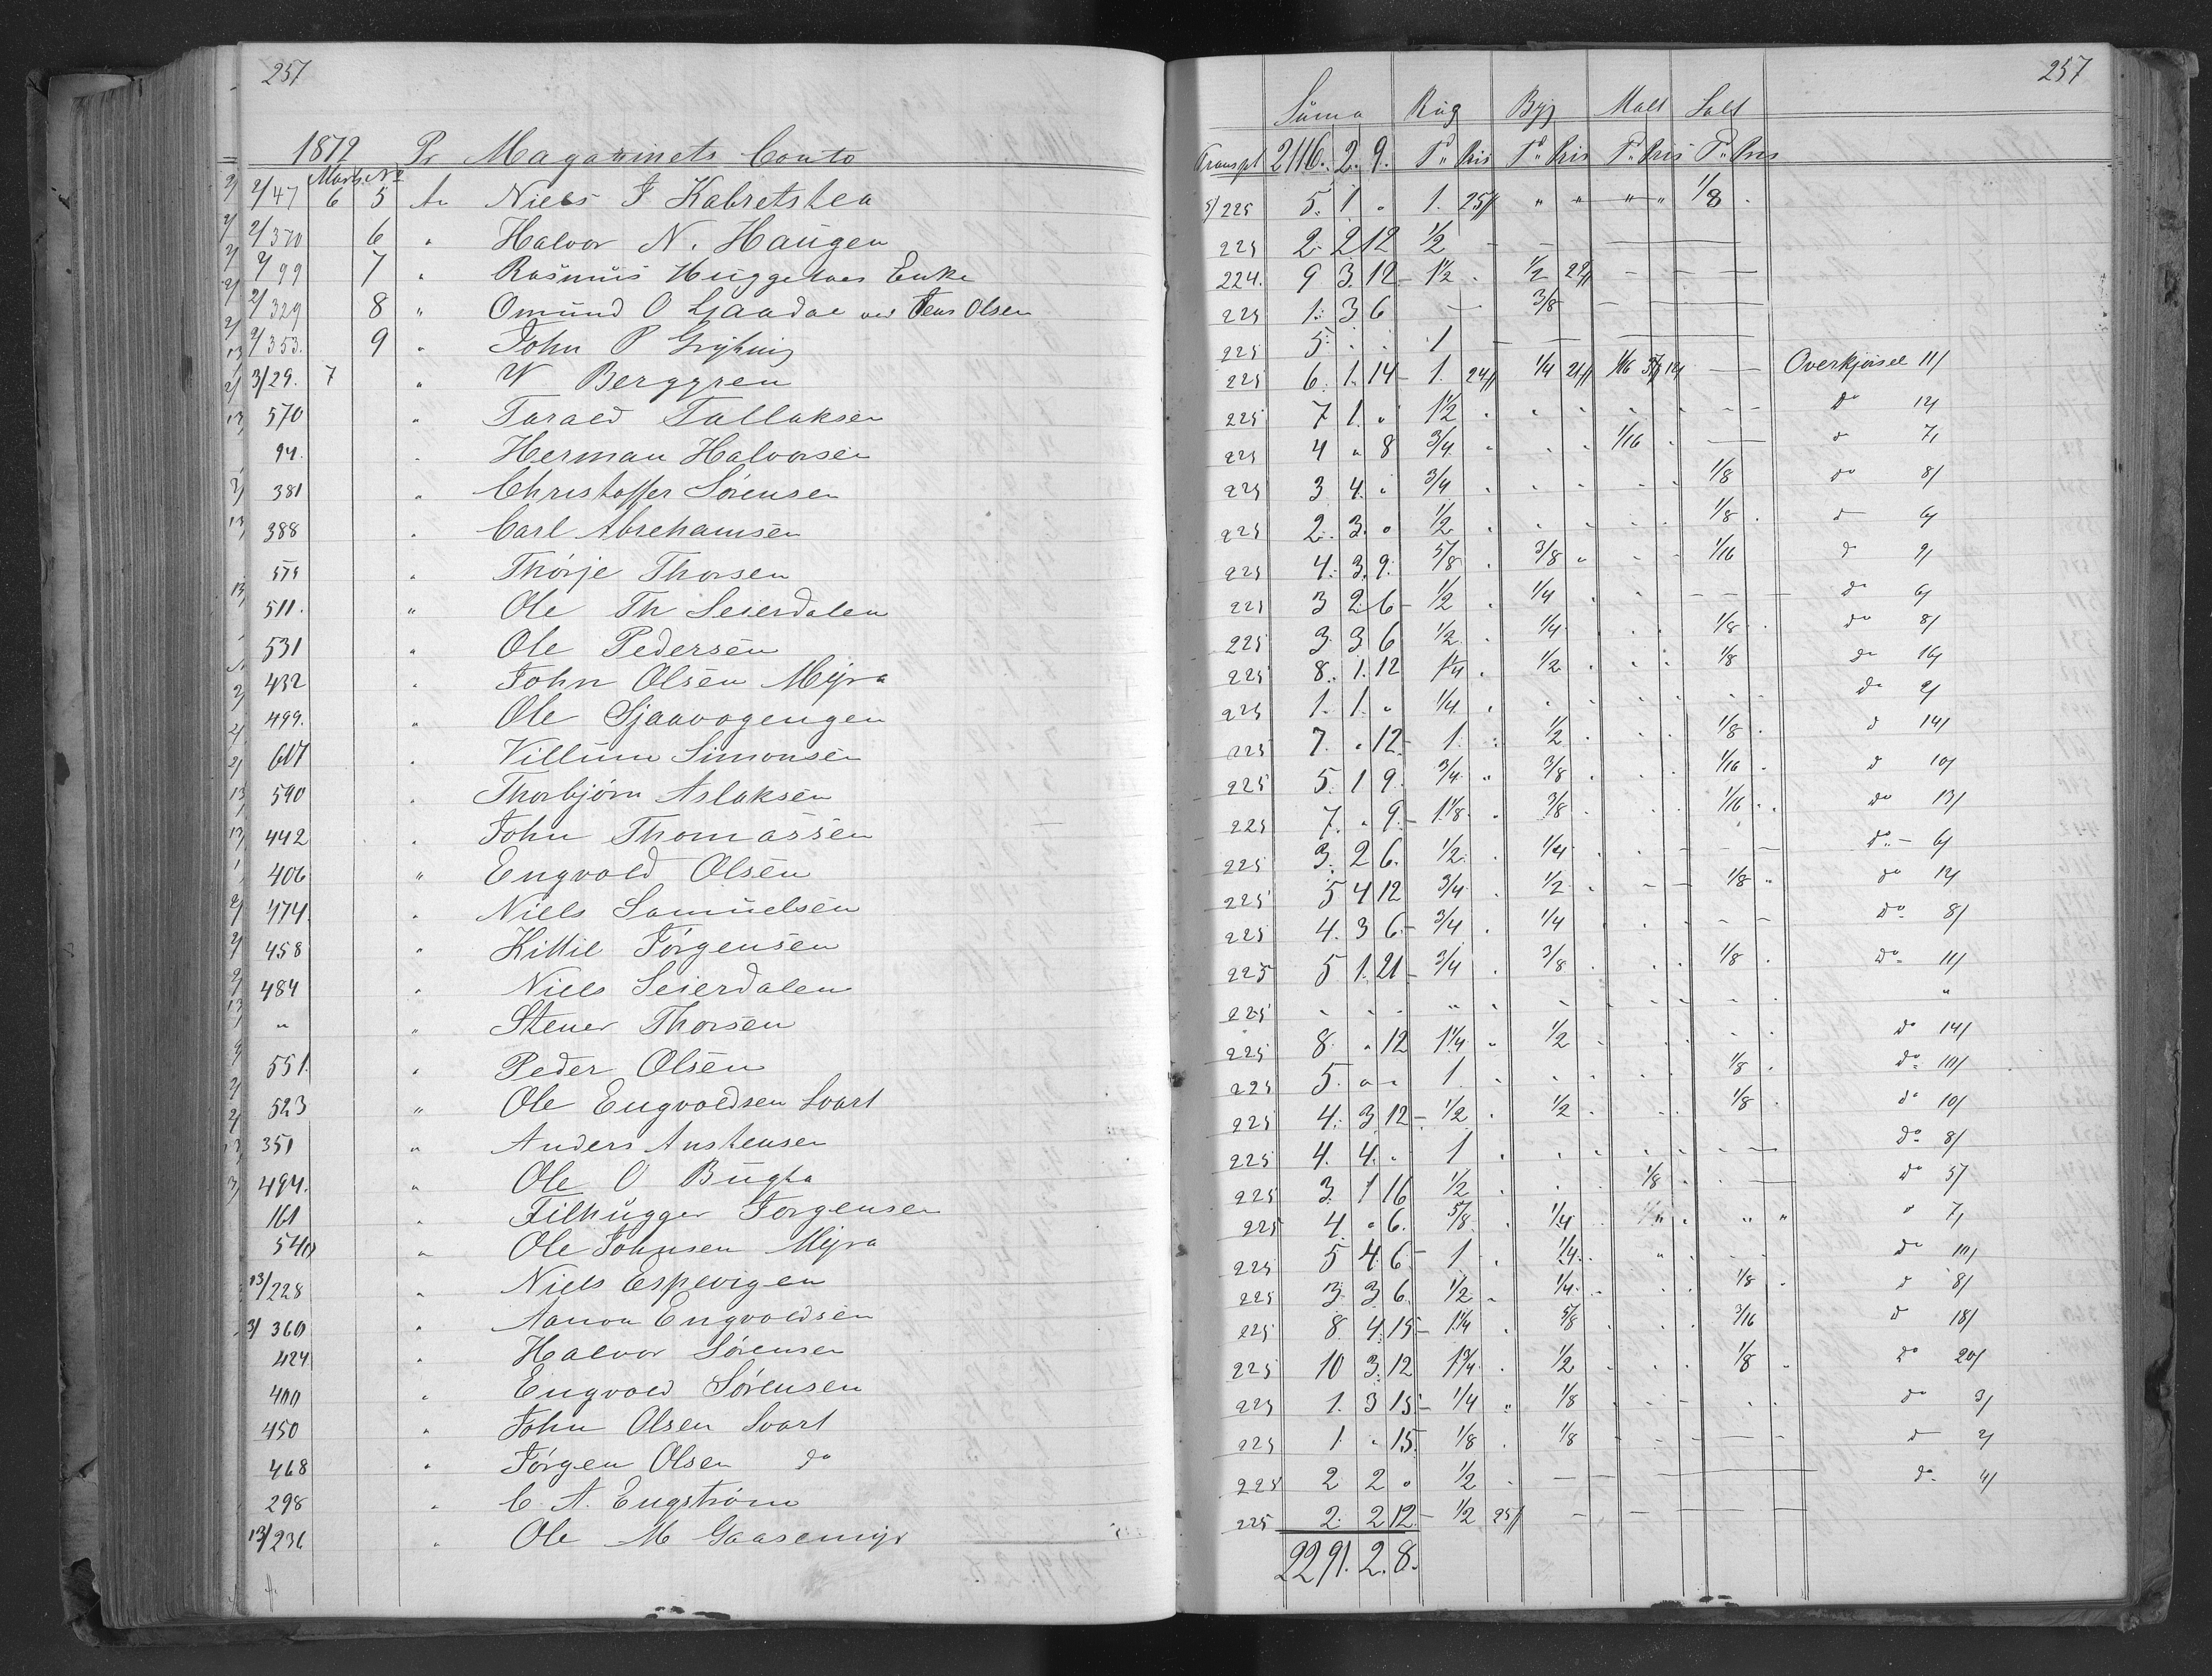 257
1872 Pr Magazinets Conto
Marts No
2/47 6 5 An Niels J Kabretslea
2/370 6 " Halvor N. Haugen
2/99 7 " Rasmus Huggeloes Enke
2/329 8 " Omund O Gaadae ved Jens Olsen
2/353. 9 " John P
3/29. 7 " W Berggren
570 " Tarald Tallaksen
94. " Herman Halvorsen
381 " Christoffer Sörensen
388 " Carl Abrehamsen
575 " Thorje Thorsen
511. " Ole Th Seierdalen
531 " Ole Pedersen
432 " John Olsen Myra
499. " Ole Sjaavogengen
607 " Villum Simonsen
590 " Thorbjörn Aslaksen
442 " John Thomassen
406 " Engvold Olsen
474. " Niels Samuelsen
458 " Kittil Jörgensen
484 " Niels Seierdalen
" " Stener Thorsen
551. " Peder Olsen
523 " Ole Engvoldsen Svart
351 " Anders Anstensen
494. " Ole O Bugta
161 " Filhugger Jorgensen
540 " Ole Johnsen Myra
13/228 " Niels Espevigen
3/360 " Aanon Engvoldsen
424 " Halvor Sörensen
400 " Engvold Sörensen
450 " John Olsen Svart
468 " Jörgen Olsen do
298 " C. A. Engström
13/236 " Ole M Gaasemyr
257
Suma Rug Byg Malt Salt
Transpt 2116. 2. 9. Td Pris Td Pris Td Pris Td Pris
5/225 5. 1 " 1. 25/ " " " " 1/8
225 2. 2 12 1/2 - - -
224. 9 3. 12 - 1 1/2 . 1/2 22/ - - -
225 1. 3 6 - 3/8 - -
225 5. . . 1 - - -
225 6. 1. 14 - 1. 24/ 1/4 21/ 1/16 - Overkjörsel 11/
225 7 1. " 1 1/2 do 12/
225 4 " 8 3/4 1/16 d 7/
225 3 4. " 3/4 1/8 do 8/
225 2. 3. " 1/2 1/8 d 6/
225 4. 3. 9. 5/8 3/8 1/16 d 9/
225 3 2 6 - 1/2 1/4 do 6/
225 3. 3 6 1/2 1/4 1/8 do 8/
225 8. 1. 12 1 1/4 1/2 1/8 do 16/
225 1. 1. " 1/4 do 2/
225 7. " 12 - 1. 1/2 1/8 d 14/
225 5. 1 9. 3/4 3/8 1/16 d 10/
225 7. " 9. - 1 1/8 3/8 1/16 do 13/
225 3. 2 6. 1/2 1/4 do - 6/
225 5 4 12 3/4 1/2 1/8 do 12/
225 4. 3 6 - 3/4 1/4 do 8/
225 5 1. 21 - 3/4 3/8 1/8 do 11/
225 . . . " "
225 8. " 12 1 1/4 1/2 do 14/
225 5. " " 1. 1/8 do 10/
225 4. 3 12 - 1/2 1/2 1/8 do 10/
225 4. 4. " 1 do 8/
225 3. 1 16 1/2 1/8 do 5/
225 4. " 6. 5/8 1/4 " 7/
225 5 4 6 - 1 1/4 do 10/
225 3 3 6. 1/2 1/4 1/8 d 8/
225 8 4 15 - 1 1/4 5/8 3/16 d 18/
225 10 3. 12 1 3/4 1/2 1/8 do 20/
225 1. 3 15 - 1/4 1/8 do 3/
225 1. " 15. 1/8 1/8 d 2/
225 2 2 " 1/2 do 4/
225 2. 2 12 - 1/2 25/ - -
2291. 2. 8.